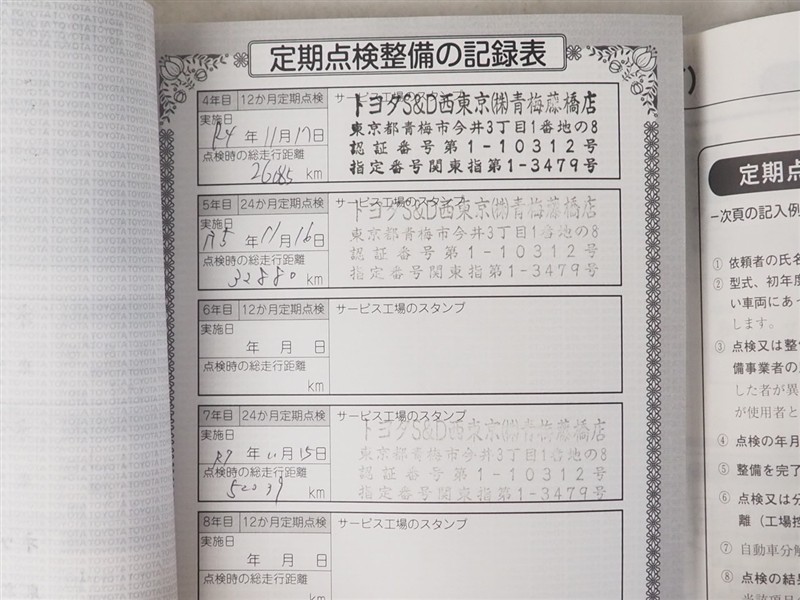 定期点検整備の記録表
4年目 12か月定期点検 サービス工場のスタンプ
トヨタS&D西東京㈱青梅藤橋店
実施日
R4 年 11月 17日
東京都青梅市今井3丁目1番地の8
点検時の総走行距離
認証番号第1-10312号
26185 km
指定番号関東指第1-3479号
5年目 24か月定期点検 サービス工場のスタンプ
トヨタS&D西東京㈱青梅藤橋店
実施日
R5 年 11月 16日
東京都青梅市今井3丁目1番地の8
点検時の総走行距離
認証番号第1-10312号
32880 km
指定番号関東指第1-3479号
6年目 12か月定期点検 サービス工場のスタンプ
実施日
年 月 日
点検時の総走行距離
km
7年目 24か月定期点検 サービス工場のスタンプ
トヨタS&D西東京㈱青梅藤橋店
実施日
R7 年 11月 15日
東京都青梅市今井3丁目1番地の8
点検時の総走行距離
認証番号第1-10312号
52039 km
指定番号関東指第1-3479号
8年目 12か月定期点検 サービス工場のスタンプ
実施日
年 月 日
点検時の総走行距離
km
定期点
−次頁の記入例
① 依頼者の氏名
② 型式、初年度
い車両にあっ
します。
③ 点検又は整
備事業者の
した者が異
が使用者と
④ 点検の年月
⑤ 整備を完了
⑥ 点検又は分
離（工場控
⑦ 自動車分解
⑧ 点検の結果